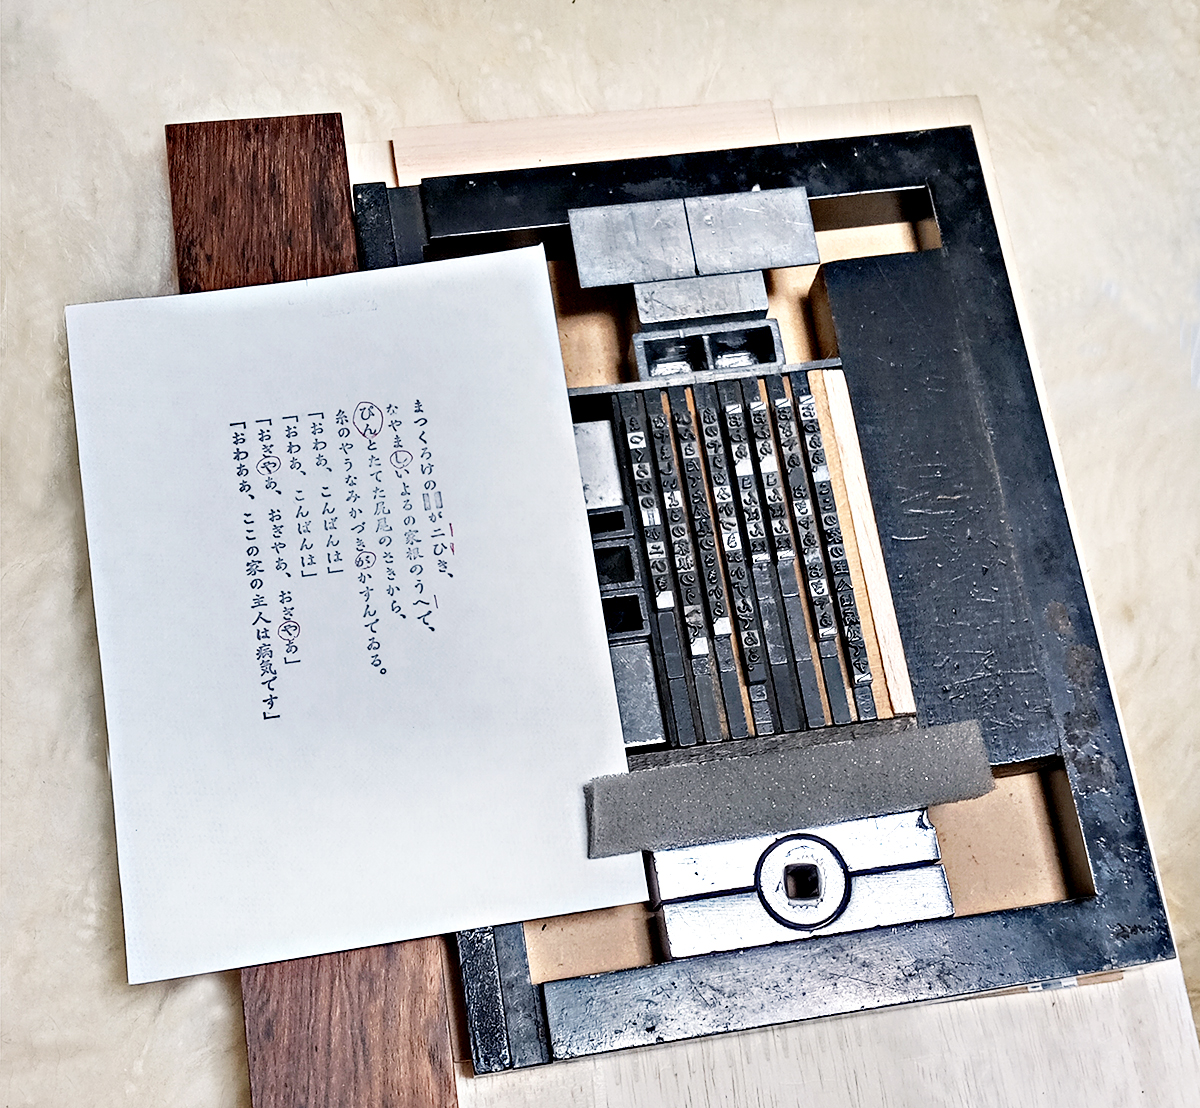 まつくろけの〓が二ひき、
なやましいよるの家根のうへで、
ぴんとたてた尻尾のさきから、
糸のやうなみかづきがかすんでゐる。
「おわあ、こんばんは」
「おわあ、こんばんは」
「おぎやあ、おぎやあ、おぎやあ」
「おわああ、ここの家の主人は病気です」